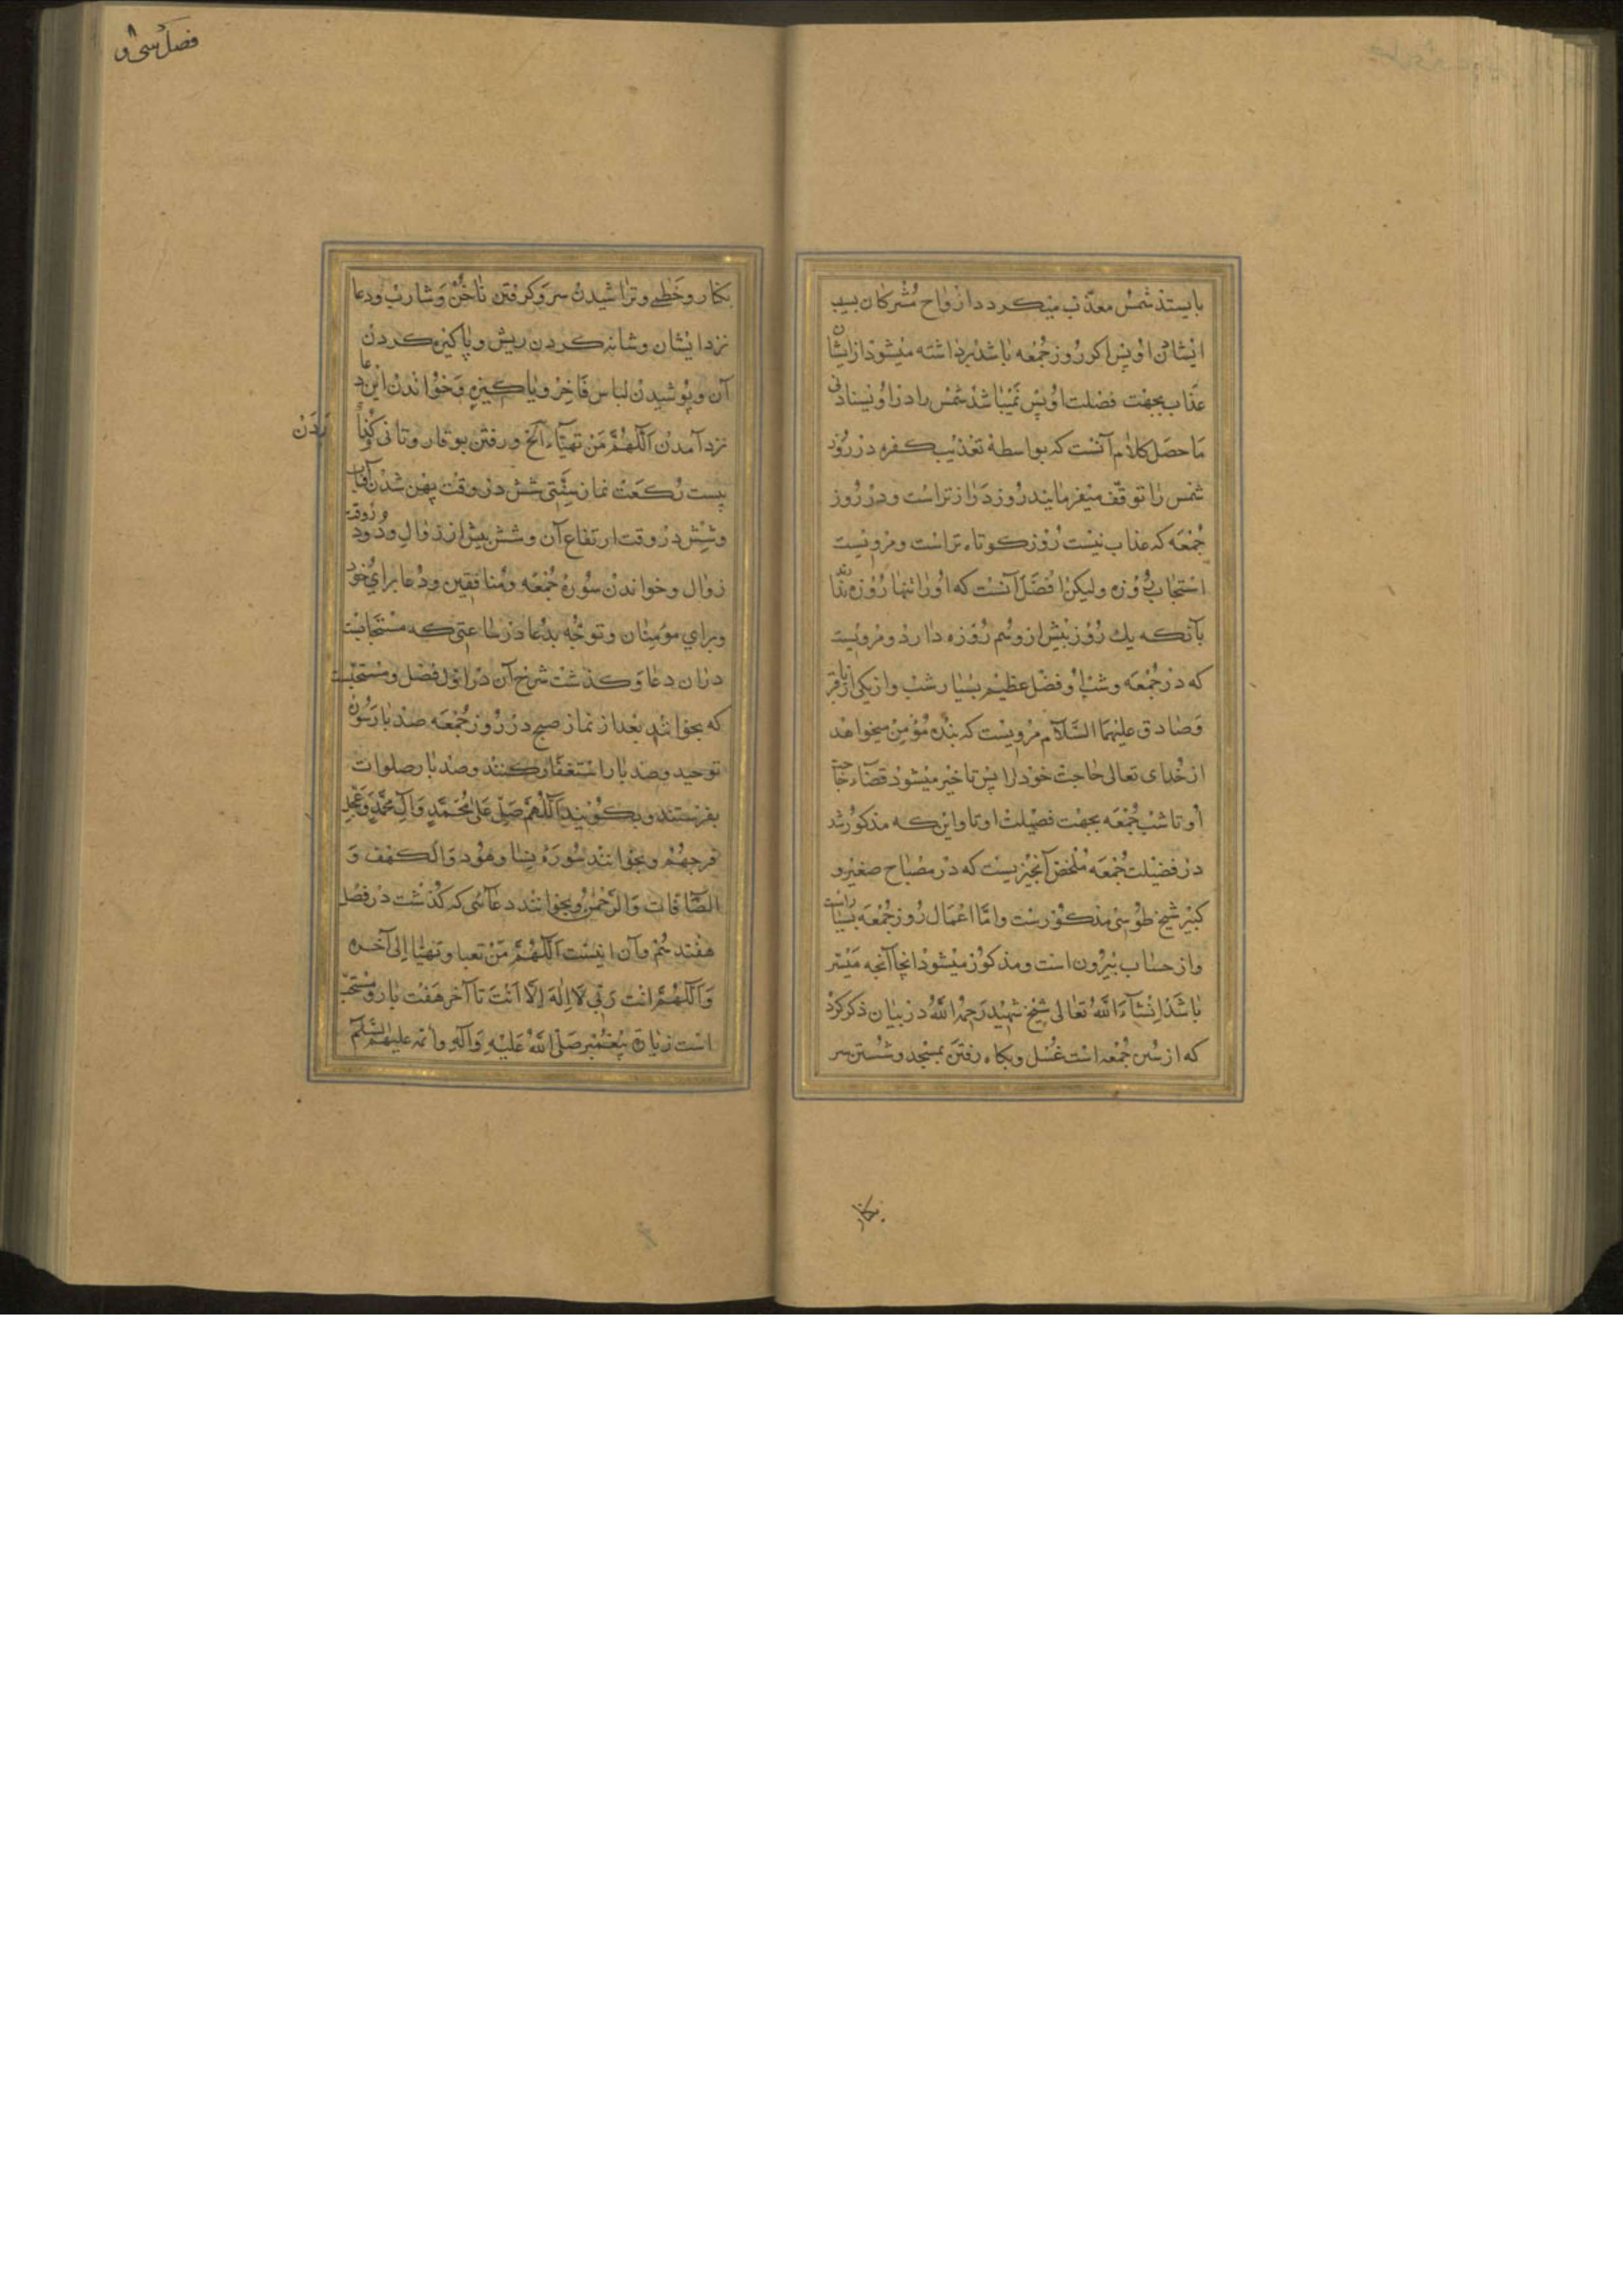 بایستد شمس معذّب میکردد ارواح مشرکان بسبب
ایشان او پس اکر روز جمعه باشد برداشته میشود از ایشان
عذاب بجهت فضلت او پس نمیباشد شمس را در او
ما حصل کلام آنست که بواسطه تعذیب کفره در روز
شمس را توقف میفرمایند روز دراز تراست و در روز
جمعه که عذاب نیست روز کوتاه تراست و مرویست
استجاب روزه ولیکن افضل آنست که او را تنها روزه ندارند
بآنکه یك روز پیش ازو هم روزه دارد و مرویست
که در جمعه و شب او فضل عظیم بسیار شب و از یکی از باقر
و صادق علیهما السّلام مرویست که بنده مؤمن میخواهد
از خدای تعالی حاجت خود را پس تاخیر میشود قضاء حاجة
او تا شب جمعه بجهت فضیلت او تا و این که مذکور شد
در فضیلت جمعه ملخص آنچیزیست که در مصباح صغیر و
کبیر شیخ طوسی مذکورست و امّا اعمال روز جمعه بسیار است
و از حساب بیرون است و مذکور میشود انجا آنچه میسّر
باشد انشآء الله تعالی شیخ شهید رحمه الله در بیان ذکر کرد
که از سنن جمعه است غسل و بکاه رفتن بمسجد و شستن سر
بکنار
فصل سی و ۸
بکنار و خطمی و تراشیدن سر و کرفتن ناخن و شارب و دعا
نزد ایشان و شانه کردن ریش و پاکیزه کردن
آن و پوشیدن لباس فاخر و پاکیزه و خواندن این دعا
نزد آمدن اللّهمّ من تهیّآء الخ و رفتن بوقار و تانی
زدن
بیست رکعت نماز سنّتی شش در وقت پهن شدن آفتاب
و شش در وقت ارتفاع آن و شش پیش از زوال و دو در وقت
زوال و خواندن سوره جمعه و منافقین و دعا برای خود
و برای مؤمنان و توجّه بدعا در ساعتی که مستجابست
دران دعا و کذشت شرح آن در اوّل فصل و مستحبست
که بخوانند بعد از نماز صبح در روز جمعه صد بار سوره
توحید و صد بار استغفار کنند و صد بار صلوات
بفرستند و بکویند اللّهمّ صلّ علی محمّد و آل محمّد و عجل
فرجهم و بخوانند سوره نسا و هود و الکهف و
الصّافات و الرّحمن و بخوانند دعائی که کذشت در فصل
هفتدهم و آن اینست اللّهمّ من تعبا و تهیّا الی آخره
و اللّهمّ انت ربّی لا اله الّا انت تا آخر هفت بار و مستحبّ
است زیارة پیغمبر صلّی الله علیه و آله و ائمه علیهم السّلم